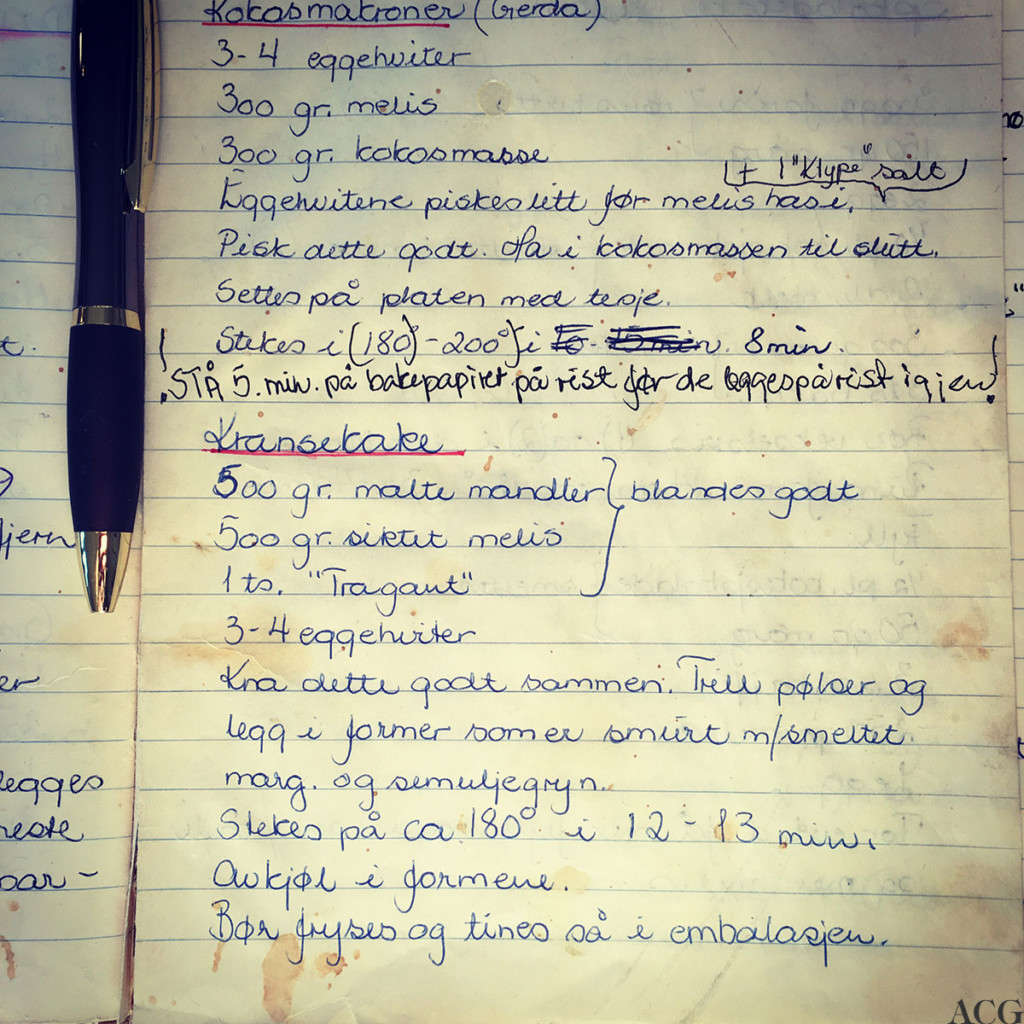 Kokosmakroner (Gerda)
3-4 eggehviter
300 gr. melis
300 gr. kokosmasse
+ 1 "Klype" salt
Eggehvitene piskes litt før melis has i.
Pisk dette godt. Ha i kokosmassen til slutt.
Settes på platen med teskje.
Stekes i (180°) - 200° i 10 - 15 min. 8 min.
STÅ 5. min. på bakepapiret på rist før de legges på rist igjen.
Kransekake
500 gr. malte mandler } blandes godt
500 gr. siktet melis
1 ts. "Tragant"
3-4 eggehviter
Kna dette godt sammen. Trill pølser og
legg i former som er smurt m/smeltet
marg. og semuljegryn.
Stekes på ca 180° i 12 - 13 min.
Avkjøl i formene.
Bør fryses og tines så i embalasjen.
t.
jern
er
legges
neste
par -
ACG